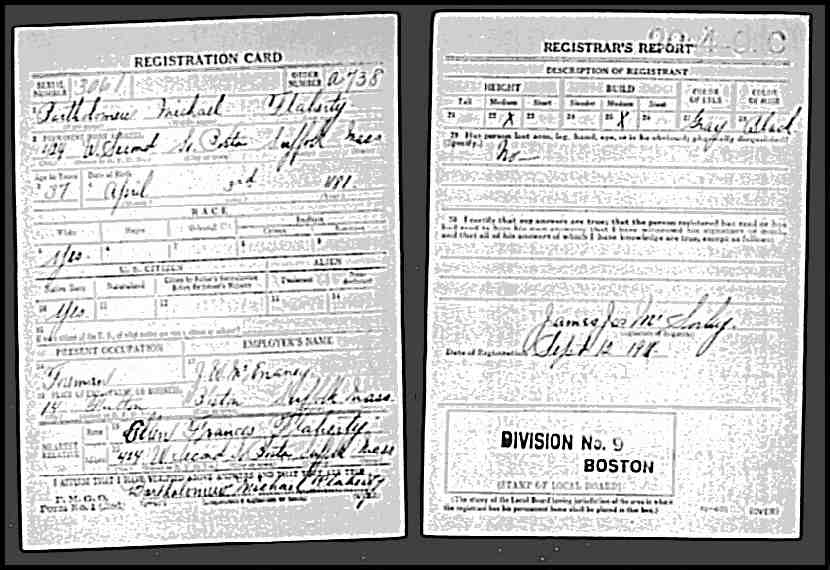 REGISTRATION CARD
SERIAL NUMBER 3067 ORDER NUMBER A738
1 Bartholomew Michael Flaherty
2 PERMANENT HOME ADDRESS
424 W. Second St. Boston Suffolk Mass
Age in Years Date of Birth
3 37 4 April 3rd 1881.
RACE
White Negro Oriental Indian
Citizen Noncitizen
5 Yes. 6 7 8 9
U. S. CITIZEN ALIEN
Native Born Naturalized Citizen by Father's Naturalization Before Registrant's Majority Declarant Non-declarant
10 Yes. 11 12 13 14
15 If not a citizen of the U. S., of what nation are you a citizen or subject?
PRESENT OCCUPATION EMPLOYER'S NAME
16 Foreman 17 J. W. McEnaney
18 PLACE OF EMPLOYMENT OR BUSINESS
Boston Suffolk Mass.
NEAREST RELATIVE Name 19 Ellen Frances Flaherty
Address 20 424 W. Second St Boston Suffolk Mass
I AFFIRM THAT I HAVE VERIFIED ABOVE ANSWERS AND THAT THEY ARE TRUE
P. M. G. O.
Form No. 1 (Red) Bartholomew Michael Flaherty
REGISTRAR'S REPORT
DESCRIPTION OF REGISTRANT
HEIGHT BUILD COLOR OF EYES COLOR OF HAIR
Tall Medium Short Slender Medium Stout
21 22 X 23 24 25 X 26 27 Gray 28 Black
29 Has person lost arm, leg, hand, eye, or is he obviously physically disqualified?
(Specify.) No
30 I certify that my answers are true; that the person registered has read or has
had read to him his own answers; that I have witnessed his signature or mark,
and that all of his answers of which I have knowledge are true, except as follows:
James Jos McSorley.
(Signature of Registrar)
Date of Registration Sept 12 1918.
DIVISION No. 9
BOSTON
(STAMP OF LOCAL BOARD)
(The stamp of the Local Board having jurisdiction of the area in which
the registrant has his permanent home shall be placed in this box.)
(OVER)